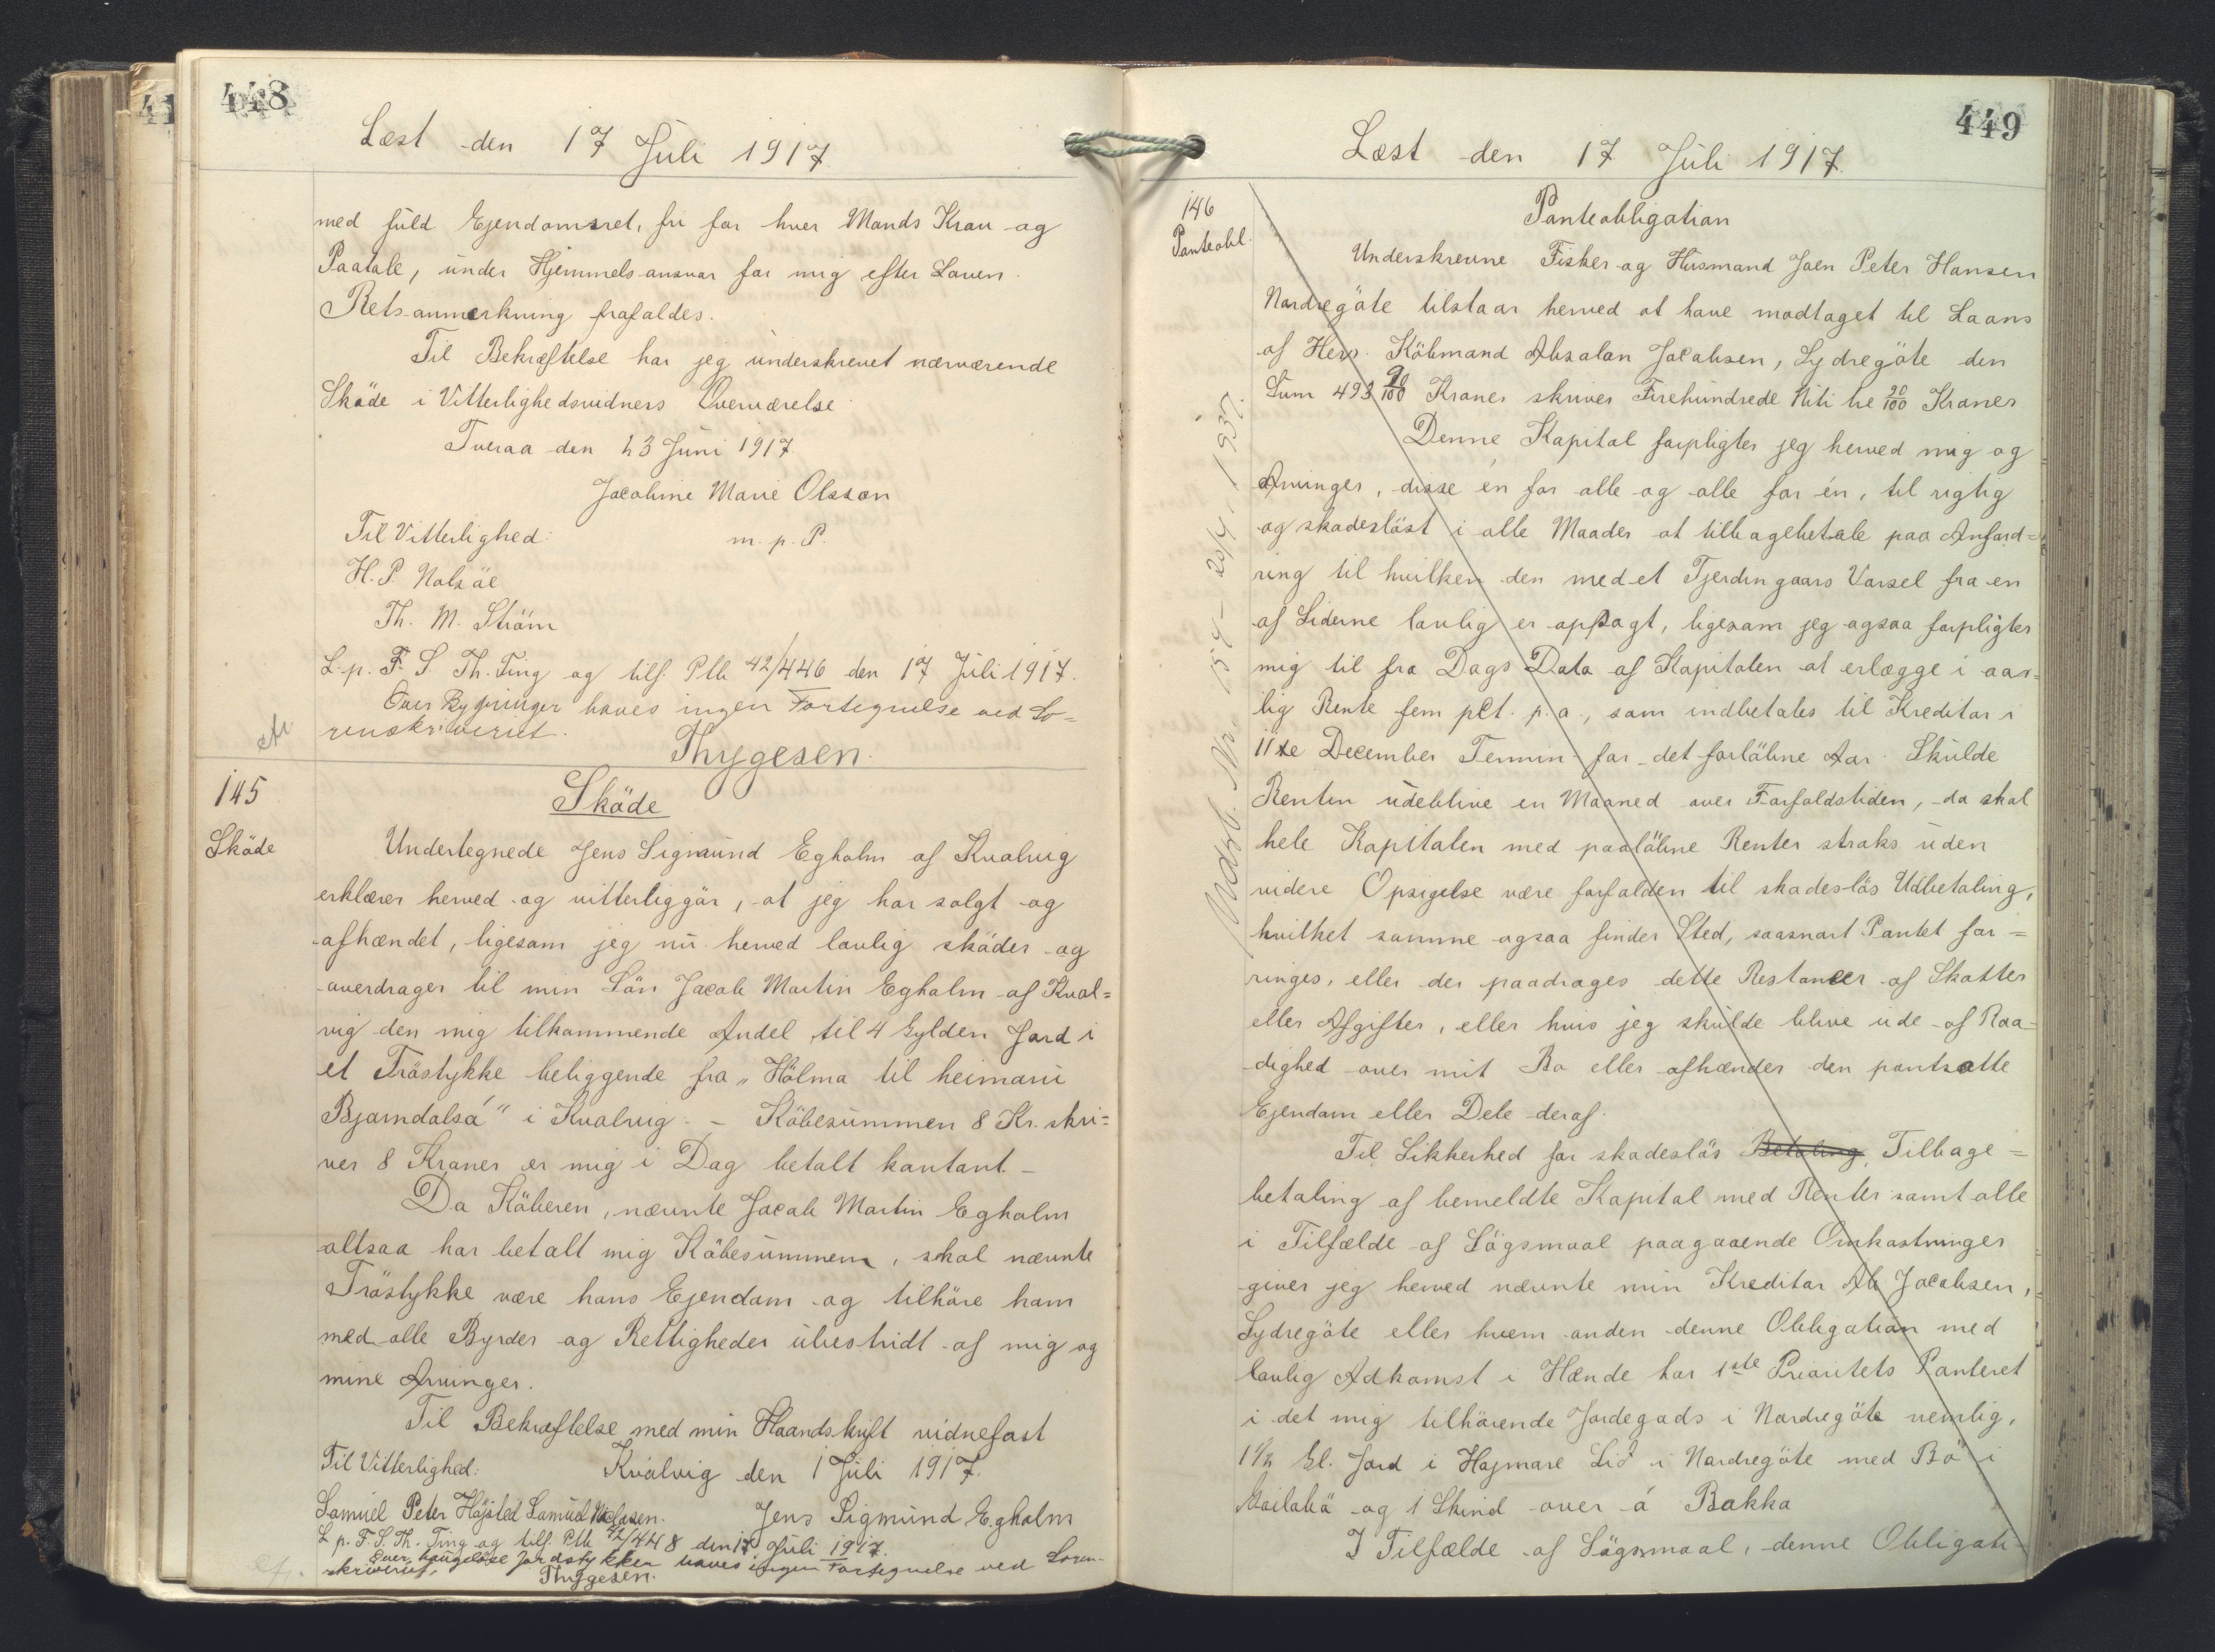 448
Læst den 17 Juli 1917.
med fuld Ejendomsret, fri for hver Mands Krav og
Paatale, under Hjemmels ansvar for mig efter Loven.
Retsanmerkning frafaldes.
Til Bekræftelse har jeg underskrevet nærværende
Sköde i Vitterlighedsvidners Overværelse
Tveraa den 23 Juni 1917
Jacobine Marie Olsson
Til Vitterlighed: m. p. P.
H. P. Nolsöe
Th. M. Ström
L. p. F. S. Th. Ting og tilf. Ptb 42/446 den 17 Juli 1917.
Over Bygninger haves ingen Fortegnelse ved So=
renskriveriet.
Thygesen.
145
Sköde
Sköde
Undertegnede Jens Sigmund Egholm af Kvalvig
erklærer herved og vitterliggör, at jeg har solgt og
afhændet, ligesom jeg nu herved lovlig sköder og
overdrager til min Sön Jacob Martin Egholm af Kval=
vig den mig tilkommende Andel til 4 Gylden Jord i
et Tröstykke beliggende fra „Hólma til heimaru
Bjarndalsá" i Kvalvig. – Köbesummen 8 Kr. skri=
ver 8 Kroner er mig i Dag betalt kontant. –
Da Köberen, nævnte Jacob Martin Egholm
altsaa har betalt mig Köbesummen, skal nævnte
Tröstykke være hans Ejendom og tilhöre ham
med alle Byrder og Rettigheder ubestridt af mig og
mine Arvinger.
Til Bekræftelse med min Haandskrift vidnefast
Til Vitterlighed: Kvalvig den 1 Juli 1917.
Samuel Peter Höjsted Samuel Niclasen. Jens Sigmund Egholm
L p. F. S. Th. Ting og tilf. Ptb 42/448 den 17 Juli 1917.
Over haugelöse Jordstykker haves ingen Fortegnelse ved Soren-
skriveriet. Thygesen.
449
Læst den 17 Juli 1917.
146
Panteobl.
Panteobligation
Underskrevne Fisker og Husmand Joen Peter Hansen
Nordregöte tilstaar herved at have modtaget til Laans
af Herr. Köbmand Absalon Jacobsen, Sydregöte den
Sum 493 90/100 Kroner skriver Firehundrede Niti tre 90/100 Kroner
Denne Kapital forpligter jeg herved mig og
Arvinger, disse én for alle og alle for én, til rigtig
og skadeslöst i alle Maader at tilbagebetale paa Anford=
ring til hvilken den med et Fjerdingaars Varsel fra en
af Siderne lovlig er opsagt, ligesom jeg ogsaa forpligter
mig til fra Dags Dato af Kapitalen at erlægge i aar-
lig Rente fem pCt. p. a., som indbetales til Kreditor i
11te December Termin for det forlöbne Aar. Skulde
Renten udeblive en Maaned over Forfaldstiden, da skal
hele Kapitalen med paalöbne Renter straks uden
videre Opsigelse være forfalden til skadeslös Udbetaling,
hvilket samme ogsaa finder Sted, saasnart Pantet for=
ringes, eller der paadrages dette Restancer af Skatter
eller Afgifter, eller hvis jeg skulde blive ude af Raa-
dighed over mit Bo eller afhænder den pantsatte
Ejendom eller Dele deraf.
Til Sikkerhed for skadeslös Betaling Tilbage=
betaling af bemeldte Kapital med Renter samt alle
i Tilfælde af Sögsmaal paagaaende Omkostninger
giver jeg herved nævnte min Kreditor Ab Jacobsen,
Sydregöte eller hvem anden denne Obligation med
lovlig Adkomst i Hænde har 1ste Prioritets Panteret
i det mig tilhörende Jordegods i Nordregöte nemlig,
1 1/2 Gl. Jord i Hojmare Lid i Nordregöte med Bö i
og 1 Skind over á Bakka
I Tilfælde af Sögsmaal, denne Obligati-
Udsl. Nr. 1937.